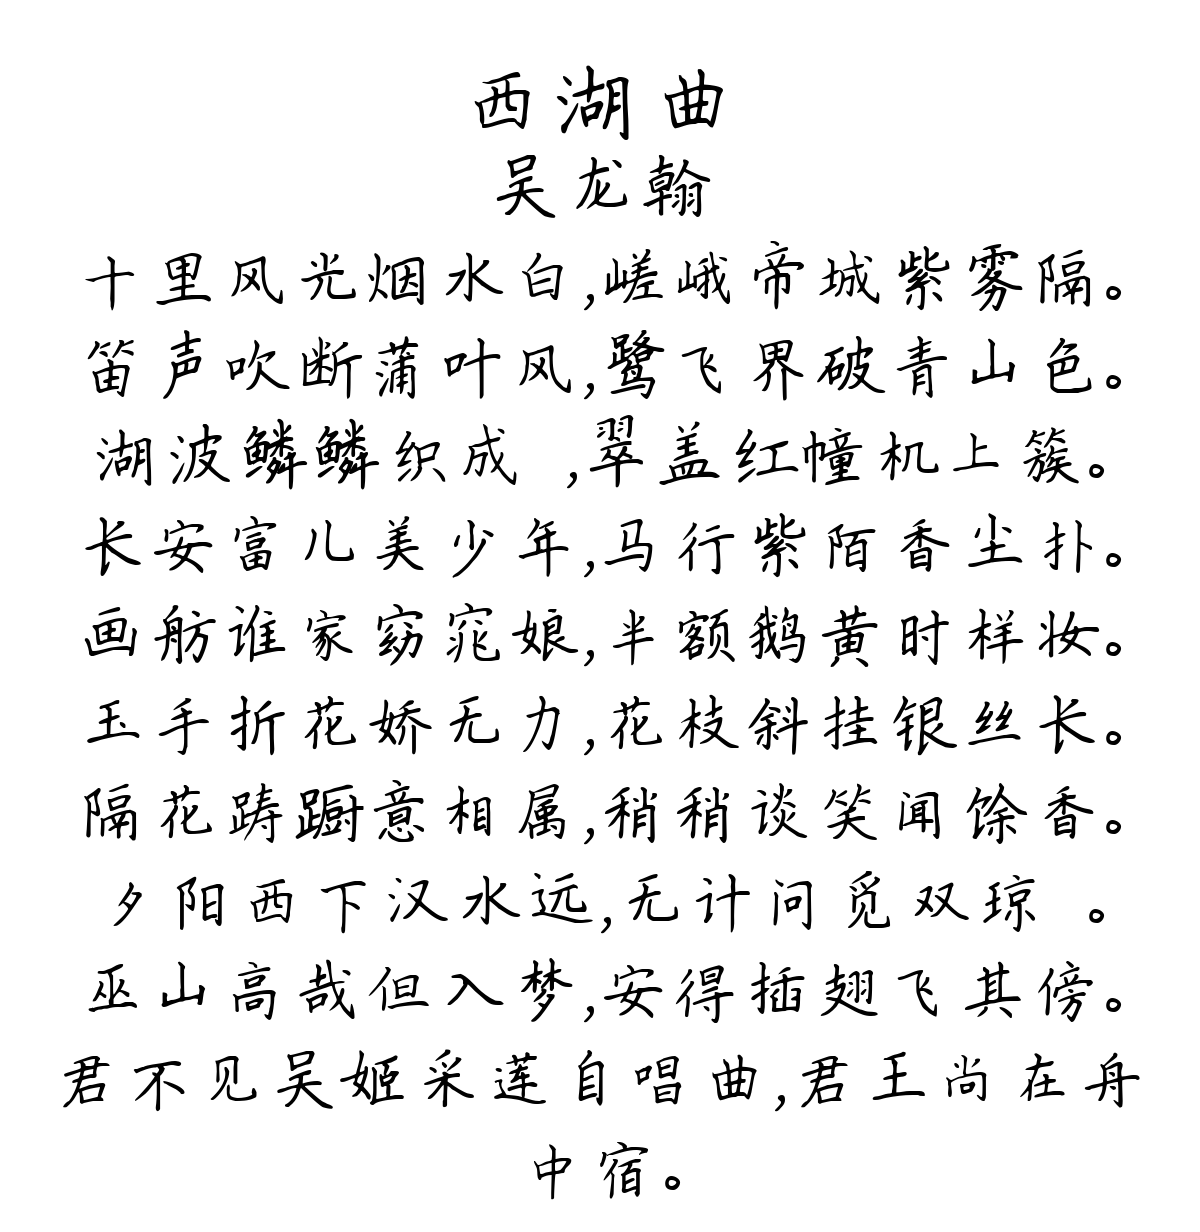 西湖曲
吴龙翰
十里风光烟水白,嵯峨帝城紫雾隔。
笛声吹断蒲叶风,鹭飞界破青山色。
湖波鳞鳞织成 ,翠盖红幢机上簇。
长安富儿美少年,马行紫陌香尘扑。
画舫谁家窈窕娘,半额鹅黄时样妆。
玉手折花娇无力,花枝斜挂银丝长。
隔花踌蹰意相属,稍稍谈笑闻馀香。
夕阳西下汉水远,无计问觅双琼 。
巫山高哉但入梦,安得插翅飞其傍。
君不见吴姬采莲自唱曲,君王尚在舟
中宿。